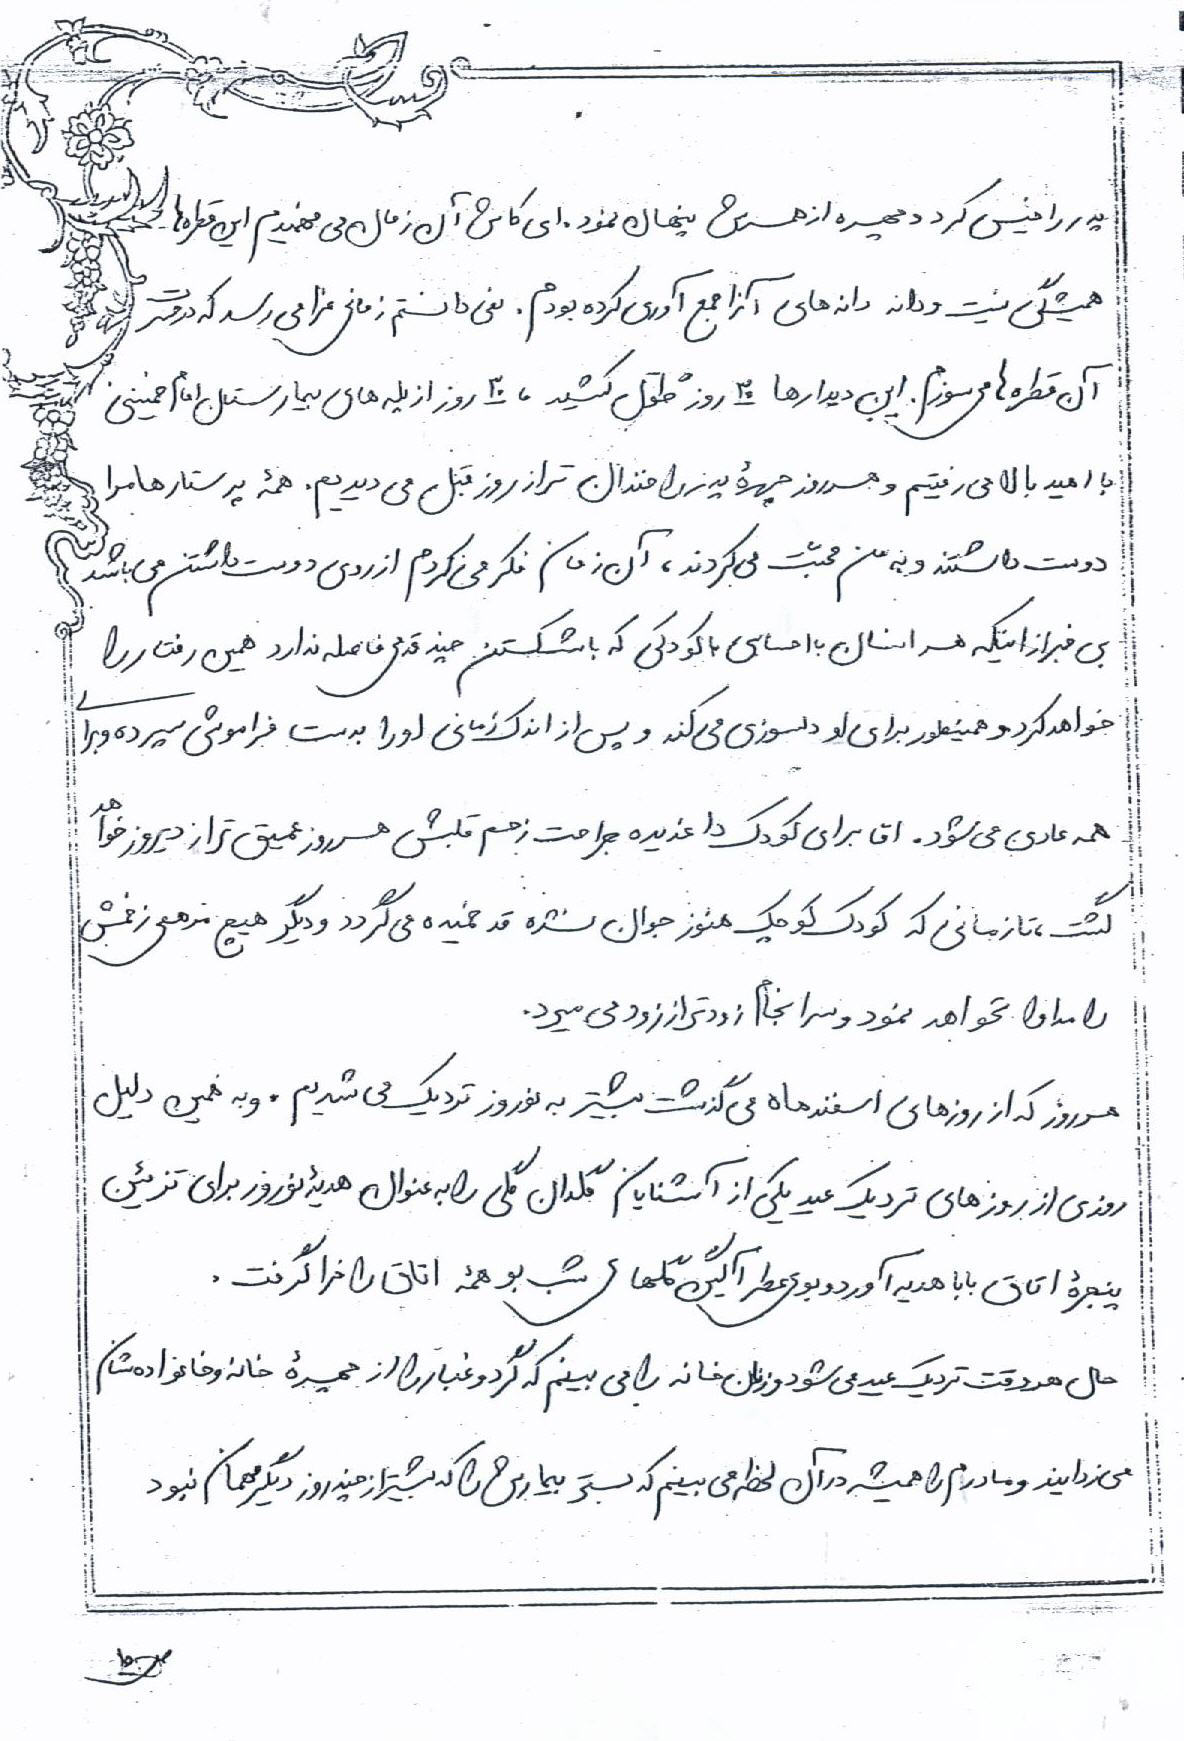 پدر را خیس کرد و چهره از همسرش پنهان نمود. ای کاش آن زمان می فهمیدم این قطره ها
همیشگی نیست و دانه دانه های آنرا جمع آوری کرده بودم. نمی دانستم زمانی فرا می رسد که در حسرت
آن قطره ها می سوزم. این دیدارها ۳۰ روز طول کشید، ۳۰ روز از پله های بیمارستان امام خمینی
با امید بالا می رفتیم و هر روز چهرۀ پدر را خندان تر از روز قبل می دیدیم. همۀ پرستارها مرا
دوست داشتند و به من محبّت می کردند، آن زمان فکر می کردم از روی دوست داشتن می باشد
بی خبر از اینکه هر انسان با احساسی با کودکی که با شکستن چند قدمی فاصله ندارد همین رفتار را
خواهد کرد و همینطور برای او دلسوزی می کند و پس از اندک زمانی او را بدست فراموشی سپرده و برای
همه عادی می شود. امّا برای کودک داغدیده جراحت زخم قلبش هر روز عمیق تر از دیروز خواهد
گشت، تا زمانی که کودک کوچک هنوز جوان نشده قد خمیده می گردد و دیگر هیچ مرهمی زخمش
را مداوا نخواهد نمود و سرانجام زودتر از زود می میرد.
هر روز که از روزهای اسفند ماه می گذشت بیشتر به نوروز نزدیک می شدیم. و به همین دلیل
روزی از روزهای نزدیک عید یکی از آشنایان گلدان گلی را به عنوان هدیۀ نوروز برای تزئین
پنجرۀ اتاق بابا هدیه آورد و بوی عطر آگین گلهای شب بو همۀ اتاق را فرا گرفت.
حال هر وقت نزدیک عید می شود و زنان خانه را می بینم که گرد و غبار را از چهرۀ خانه و خانواده شان
می زدایند و مادرم را همیشه در آن لحظه می بینم که بستر بیمارش را که بیشتر از چند روز دیگر مهمان نبود
ص ۱۰